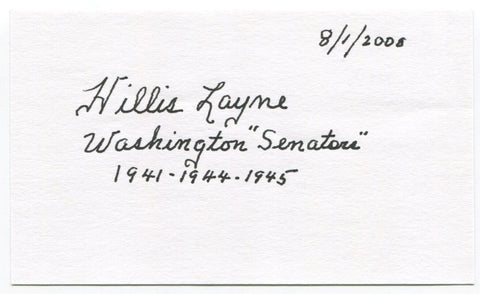 8/1/2008
Hillis Layne
Washington "Senators"
1941-1944-1945